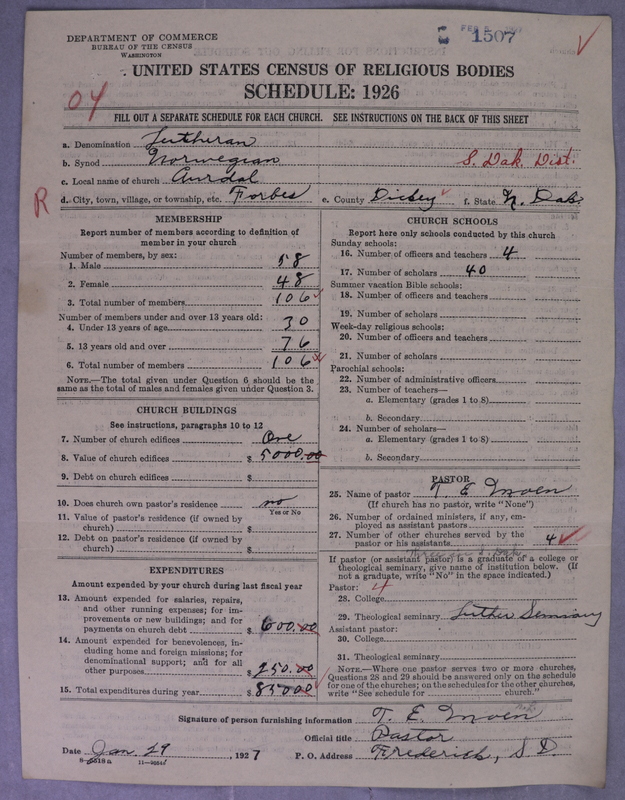 DEPARTMENT OF COMMERCE
BUREAU OF THE CENSUS
WASHINGTON
1507
UNITED STATES CENSUS OF RELIGIOUS BODIES
SCHEDULE: 1926
04
FILL OUT A SEPARATE SCHEDULE FOR EACH CHURCH. SEE INSTRUCTIONS ON THE BACK OF THIS SHEET
a. Denomination Lutheran
b. Synod Norwegian S. Dak. Dist.
c. Local name of church Aurdal
R
d. City, town, village, or township, etc. Forbes e. County Dickey f. State N. Dak.
MEMBERSHIP
Report number of members according to definition of member in your church
Number of members, by sex:
1. Male 58
2. Female 48
3. Total number of members 106
Number of members under and over 13 years old:
4. Under 13 years of age 30
5. 13 years old and over 76
6. Total number of members 106
NOTE.—The total given under Question 6 should be the
same as the total of males and females given under Question 3.
CHURCH BUILDINGS
See instructions, paragraphs 10 to 12
7. Number of church edifices One
8. Value of church edifices $ 5000.00
9. Debt on church edifices $
10. Does church own pastor's residence no
Yes or No
11. Value of pastor's residence (if owned by
church) $
12. Debt on pastor's residence (if owned by
church) $
EXPENDITURES
Amount expended by your church during last fiscal year
13. Amount expended for salaries, repairs,
and other running expenses; for im-
provements or new buildings; and for
payments on church debt $ 600.00
14. Amount expended for benevolences, in-
cluding home and foreign missions; for
denominational support; and for all
other purposes $ 250.00
15. Total expenditures during year $ 850.00
CHURCH SCHOOLS
Report here only schools conducted by this church
Sunday schools:
16. Number of officers and teachers 4
17. Number of scholars 40
Summer vacation Bible schools:
18. Number of officers and teachers
19. Number of scholars
Week-day religious schools:
20. Number of officers and teachers
21. Number of scholars
Parochial schools:
22. Number of administrative officers
23. Number of teachers—
a. Elementary (grades 1 to 8)
b. Secondary
24. Number of scholars—
a. Elementary (grades 1 to 8)
b. Secondary
PASTOR
25. Name of pastor T. E. Moen
(If church has no pastor, write "None")
26. Number of ordained ministers, if any, em-
ployed as assistant pastors
27. Number of other churches served by the
pastor or his assistants 4
If pastor (or assistant pastor) is a graduate of a college or
theological seminary, give name of institution below. (If
not a graduate, write "No" in the space indicated.)
Pastor: 4
28. College
29. Theological seminary Luther Seminary
Assistant pastor:
30. College
31. Theological seminary
NOTE.—Where one pastor serves two or more churches,
Questions 28 and 29 should be answered only on the schedule
for one of the churches; on the schedules for the other churches,
write "See schedule for church."
Signature of person furnishing information T. E. Moen
Official title Pastor
Date Jan. 29, 1927 P. O. Address Frederick, S. D.